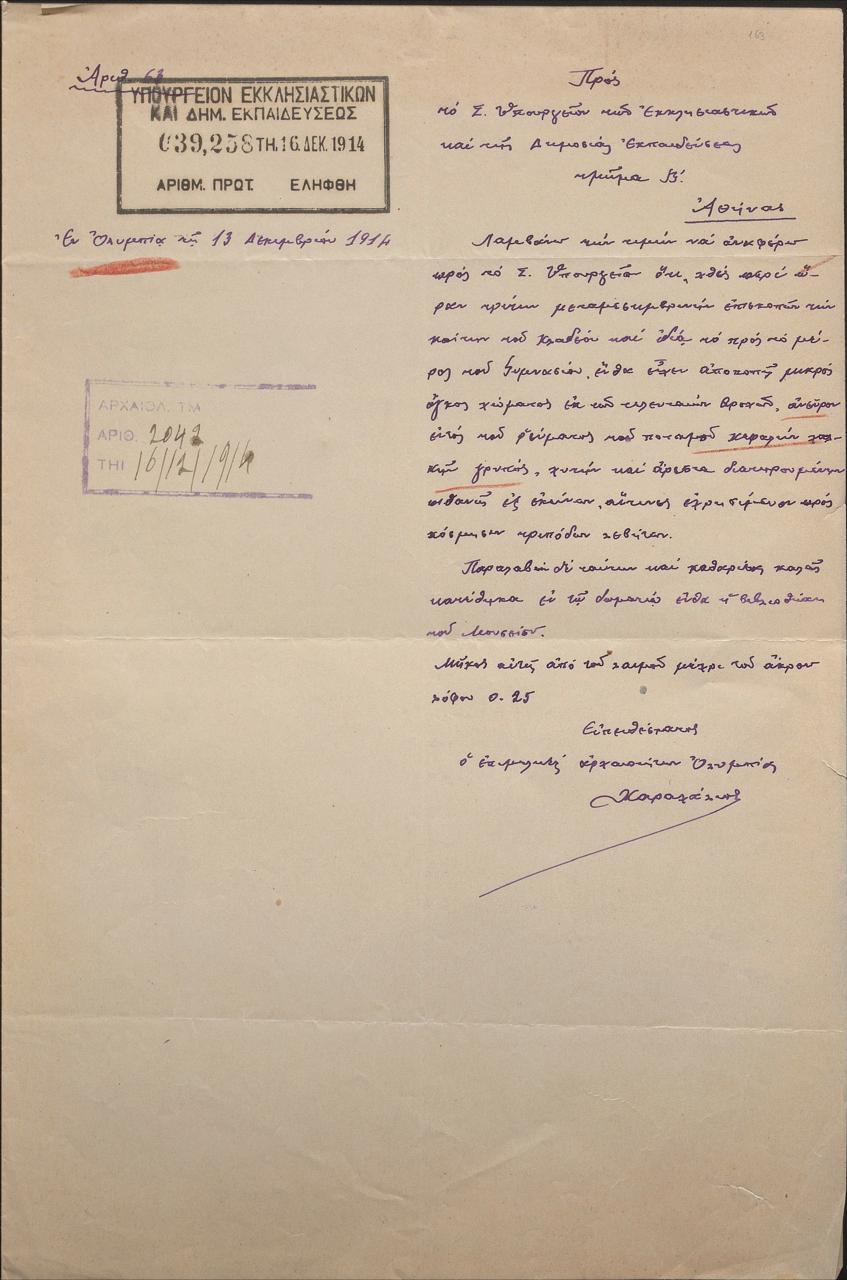 Ἀριθ 63
ΥΠΟΥΡΓΕΙΟΝ ΕΚΚΛΗΣΙΑΣΤΙΚΩΝ
ΚΑΙ ΔΗΜ. ΕΚΠΑΙΔΕΥΣΕΩΣ
039,258 ΤΗ. 16. ΔΕΚ. 1914
ΑΡΙΘΜ. ΠΡΩΤ. ΕΛΗΦΘΗ
Ἐν Ὀλυμπίᾳ τῇ 13 Δεκεμβρίου 1914
ΑΡΧΑΙΟΛ. ΤΜ
ΑΡΙΘ. 2042
ΤΗΙ 16/12/1914
163
Πρός
τό Σ. Ὑπουργεῖον τῶν Ἐκκλησιαστικῶν
καί τῆς Δημοσίας Ἐκπαιδεύσεως
τμῆμα Β΄.
Ἀθήνας
Λαμβάνω τήν τιμήν νά ἀναφέρω
πρός τό Σ. Ὑπουργεῖον ὅτι, χθές περί ὥ-
ραν τρίτην μεταμεσημβρινήν ἐπισκοπῶν τήν
κοίτην τοῦ Κλαδέου καί ἰδίᾳ τό πρός τό μέ-
ρος τοῦ Γυμνασίου, ἔνθα εἶχεν ἀποκοπῇ μικρός
ὄγκος χώματος ἐκ τῶν τελευταίων βροχῶν, ἀνεῦρον
ἐντός τοῦ ῥεύματος τοῦ ποταμοῦ κεφαλήν χαλ-
κῆν γρυπός, χυτήν καί ἄριστα διατηρουμένην
πιθανῶς ἐξ ἐκείνων, αἵτινες ἐχρησίμευον πρός
κόσμησιν τριπόδων λεβήτων.
Παραλαβών δέ ταύτην καί καθαρίσας καλῶς
κατέθηκα ἐν τῷ δωματίῳ ἔνθα ἡ βιβλιοθήκη
τοῦ Μουσείου.
Μῆκος αὐτῆς ἀπό τοῦ λαιμοῦ μέχρι τοῦ ἄκρου
λόφου 0.25
Εὐπειθέστατος
ὁ ἐπιμελητής ἀρχαιοτήτων Ὀλυμπίας